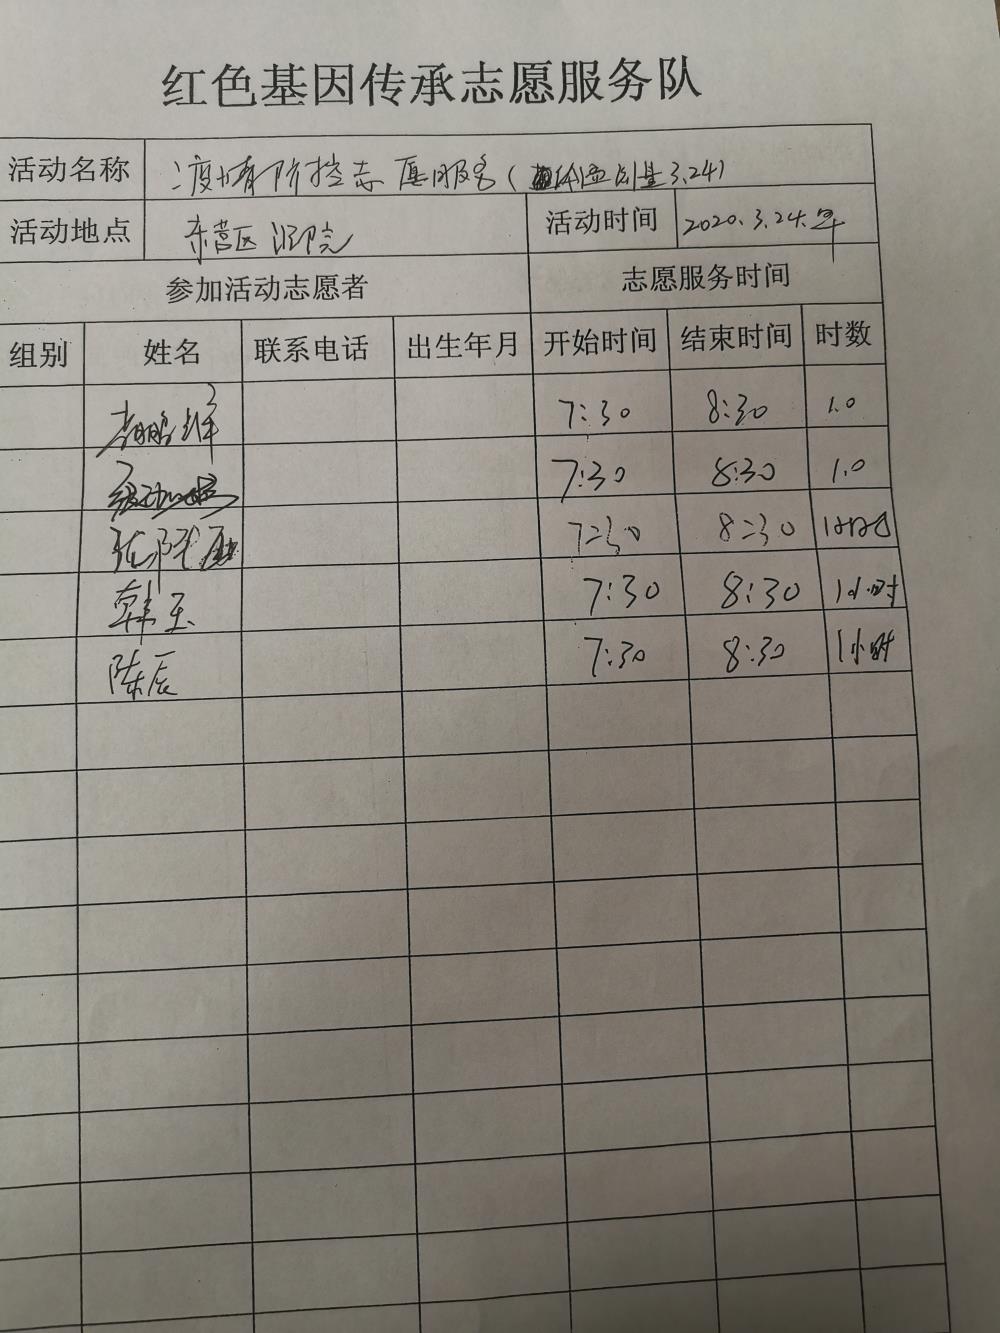 红色基因传承志愿服务队
活动名称 疫情防控志愿服务(体温测量3.24)
活动地点 东营区法院 活动时间 2020.3.24.早
参加活动志愿者 志愿服务时间
组别 姓名 联系电话 出生年月 开始时间 结束时间 时数
7:30 8:30 1.0
7:30 8:30 1.0
7:30 8:30 1小时
韩玉 7:30 8:30 1小时
陈辰 7:30 8:30 1小时